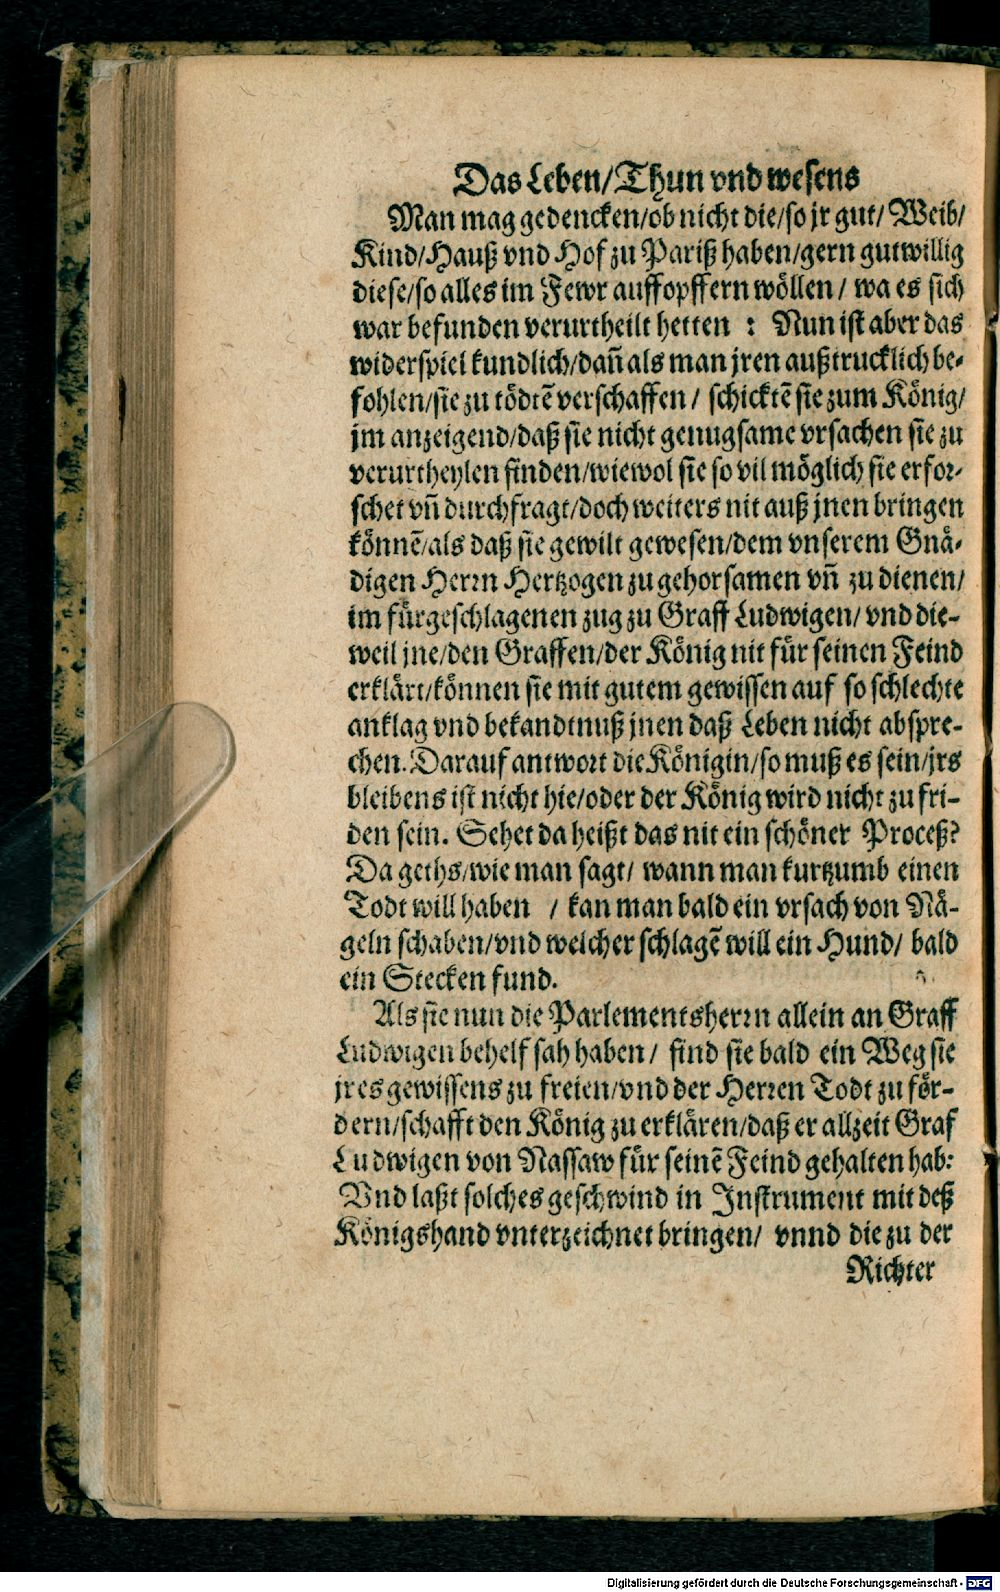 Das Leben/Thun vnd wesens
Man mag gedencken/ob nicht die/so jr gut/ Weib/
Kind/Hauß vnd Hof zu Pariß haben/gern gutwillig
diese/so alles im Fewr auffopffern wöllen/ wa es sich
war befunden verurtheilt hetten : Nun ist aber das
widerspiel kundlich/dañ als man jren außtrucklich be-
fohlen/sie zu tödtē verschaffen/ schicktē sie zum König/
jm anzeigend/daß sie nicht genugsame vrsachen sie zu
verurtheylen finden/wiewol sie so vil möglich sie erfor-
schet vñ durchfragt/doch weiters nit auß jnen bringen
könnē/als daß sie gewilt gewesen/dem vnserem Gnä-
digen Herrn Hertzogen zu gehorsamen vñ zu dienen/
im fürgeschlagenen zug zu Graff Ludwigen/ vnd die-
weil jne/den Graffen/der König nit für seinen Feind
erklärt/können sie mit gutem gewissen auf so schlechte
anklag vnd bekandtnuß jnen daß Leben nicht abspre-
chen. Darauf antwort die Königin/so muß es sein/jrs
bleibens ist nicht hie/oder der König wird nicht zu fri-
den sein. Sehet da heißt das nit ein schöner Proceß?
Da geths/wie man sagt/ wann man kurtzumb einen
Todt will haben / kan man bald ein vrsach von Nä-
geln schaben/vnd welcher schlagē will ein Hund/ bald
ein Stecken fund.
Als sie nun die Parlementsherrn allein an Graff
Ludwigen behelf sah haben/ find sie bald ein Weg sie
jres gewissens zu freien/vnd der Herren Todt zu för-
dern/schafft den König zu erklären/daß er allzeit Graf
Ludwigen von Nassaw für seinē Feind gehalten hab:
Vnd laßt solches geschwind in Instrument mit deß
Königshand vnterzeichnet bringen/ vnnd die zu der
Richter
Digitalisierung gefördert durch die Deutsche Forschungsgemeinschaft - DFG